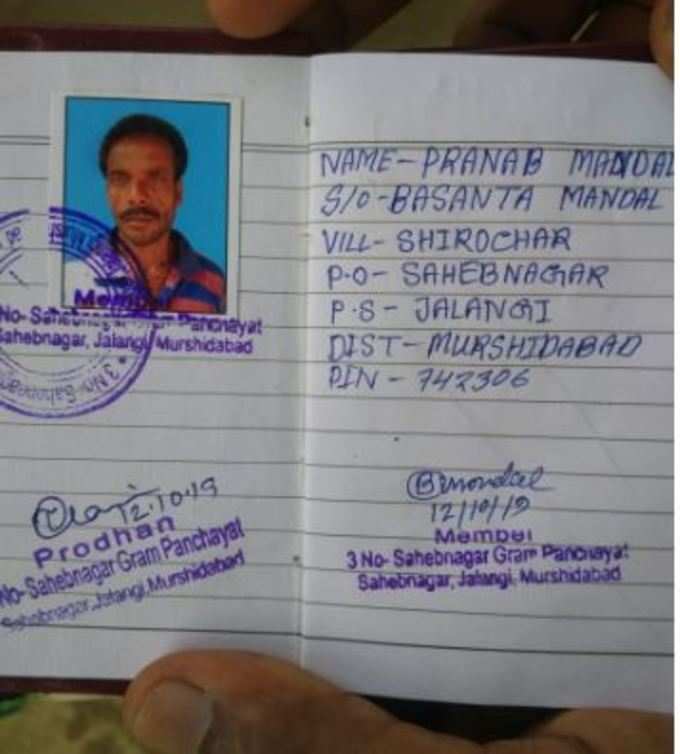 NAME - PRANAB MANDAL
S/O - BASANTA MANDAL
VILL - SHIROCHAR
P.O - SAHEBNAGAR
P.S - JALANGI
DIST - MURSHIDABAD
PIN - 742306
Member
No- Sahebnagar Gram Panchayat
Sahebnagar, Jalangi, Murshidabad
3 No- Sahebnagar
12.10.19
Prodhan
No- Sahebnagar Gram Panchayat
Sahebnagar, Jalangi, Murshidabad
Bmondal
12/10/19
Member
3 No- Sahebnagar Gram Panchayat
Sahebnagar, Jalangi, Murshidabad